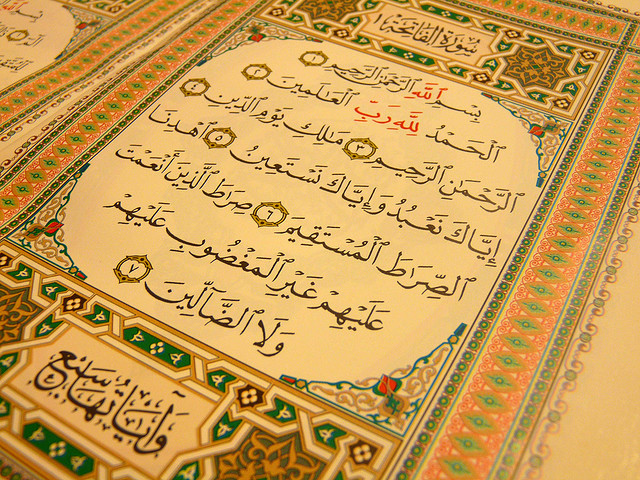 سُورَةُ الْفَاتِحَةِ
بِسْمِ ٱللَّهِ ٱلرَّحْمَٰنِ ٱلرَّحِيمِ ١
ٱلْحَمْدُ لِلَّهِ رَبِّ ٱلْعَالَمِينَ ٢
ٱلرَّحْمَٰنِ ٱلرَّحِيمِ ٣ مَالِكِ يَوْمِ ٱلدِّينِ ٤
إِيَّاكَ نَعْبُدُ وَإِيَّاكَ نَسْتَعِينُ ٥ ٱهْدِنَا
ٱلصِّرَاطَ ٱلْمُسْتَقِيمَ ٦ صِرَاطَ ٱلَّذِينَ أَنْعَمْتَ
عَلَيْهِمْ غَيْرِ ٱلْمَغْضُوبِ عَلَيْهِمْ
وَلَا ٱلضَّآلِّينَ ٧
وَآيَاتُهَا سَبْعٌ